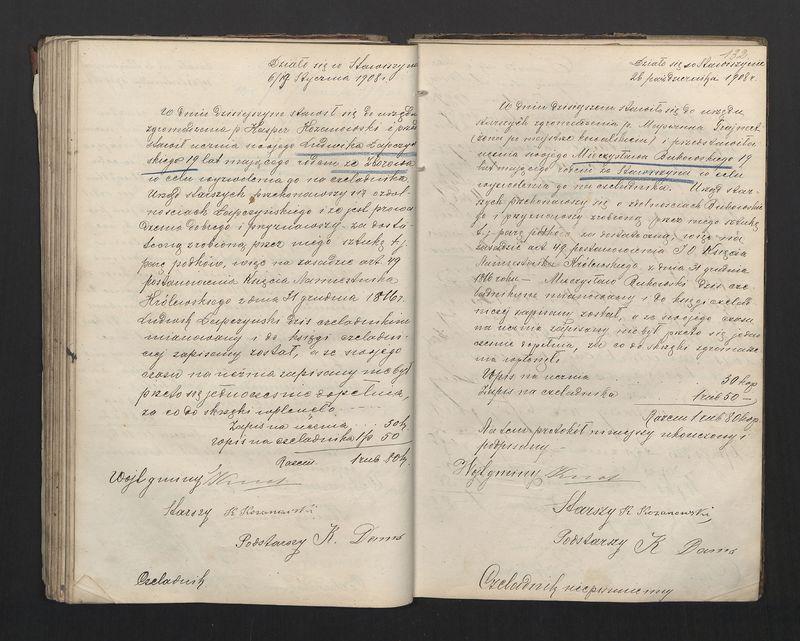 Działo się w Staroszynie
6/19 Stycznia 1908 r.
W dniu dzisiejszym stawił się do urzędu
zgromadzenia p. Kasper Kozanowski i przed
stawił ucznia swojego Ludwika Łupczyń
skiego 19 lat mającego rodem ze
w celu wyzwolenia go na czeladnika.
Urząd starszych przekonawszy się o zdol
nościach Łupczyńskiego i że jest prowa
dzenia dobrego i przyznawszy za dosta
teczną zrobioną przez niego sztukę t.j.
parę podków, więc na zasadzie art 49
postanowienia Księcia Namiestnika
Królewskiego z dnia 31 grudnia 1816 r.
Ludwik Łupczyński dziś czeladnikiem
mianowany i do księgi czeladni
czej zapisany został, a że swojego
czasu na ucznia zapisany nie był
przeto się jednocześnie dopełnia,
za co do skrzynki wpłenęło
Zapis na ucznia 30 k.
zapis na czeladnika 1 rb 50
Razem 1 rub 80 k.
Wójt gminy
Starszy K Kozanowski
Podstarszy K. Doms
Czeladnik
133
Działo się w Staroszynie
26 października 1908 r.
W dniu dzisiejszem stawiła się do urzędu
starszych zgromadzenia p. Maryanna
(żona po majstrze kowalskim) i przedstawiła
ucznia swojego Mieczysława Bukowskiego 19
lat mającego rodem ze Staroszyna w celu
wyzwolenia go na czeladnika. Urząd star
szych przekonawszy się o zdolnościach Bukowskie
go i przyznawszy zrobioną przez niego sztukę
t.j. parę podków za dostateczną, więc na
zasadzie art 49 postanowienia J. O. Księcia
Namiestnika Królewskiego z dnia 31 grudnia
1816 roku — Mieczysław Bukowski dziś cze
ladnikiem mianowany i do księgi czelad
niczej zapisany został, a że swojego czasu
na ucznia zapisany nie był przeto się jedno
cześnie dopełnia, za co do skrzynki zgromadze
nia wpłenęło
Wpis na ucznia 30 kop
Zapis na czeladnika 1 rub 50 —
Razem 1 rub 80 kop.
Na tem protokół niniejszy ukończony i
podpisany —
Wójt gminy
Starszy K Kozanowski
Podstarszy K Doms
Czeladnik niepiśmienny